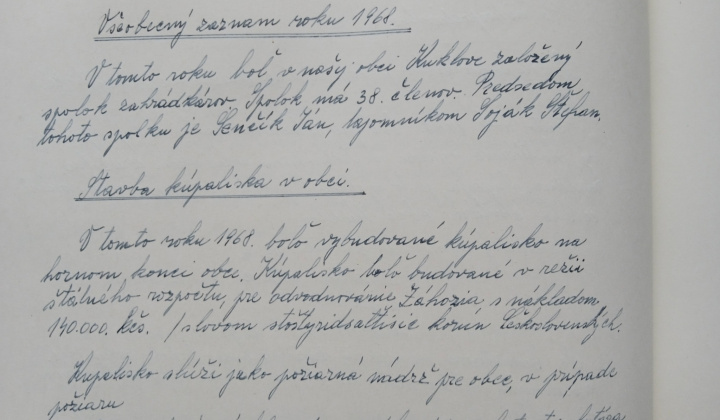 Všeobecný zaznam roku 1968.
V tomto roku bol v našej obci Kuklove založený
spolok zahrádkárov. Spolok má 38. členov. Predsedom
tohoto spolku je Senčík Ján, tajomníkom Soják Štefan.
Stavba kúpaliska v obci.
V tomto roku 1968. bolo vybudované kúpalisko na
hornom konci obce. Kúpalisko bolo budované v režii
štálného rozpočtu, pre odvodnovánie Záhozia, s nákladom
140.000. kčs. /slovom stoštyridsaťtisíc korún Československých.
Kupalisko slúži jako požiarná nádrž pre obec, v prípade
požiaru